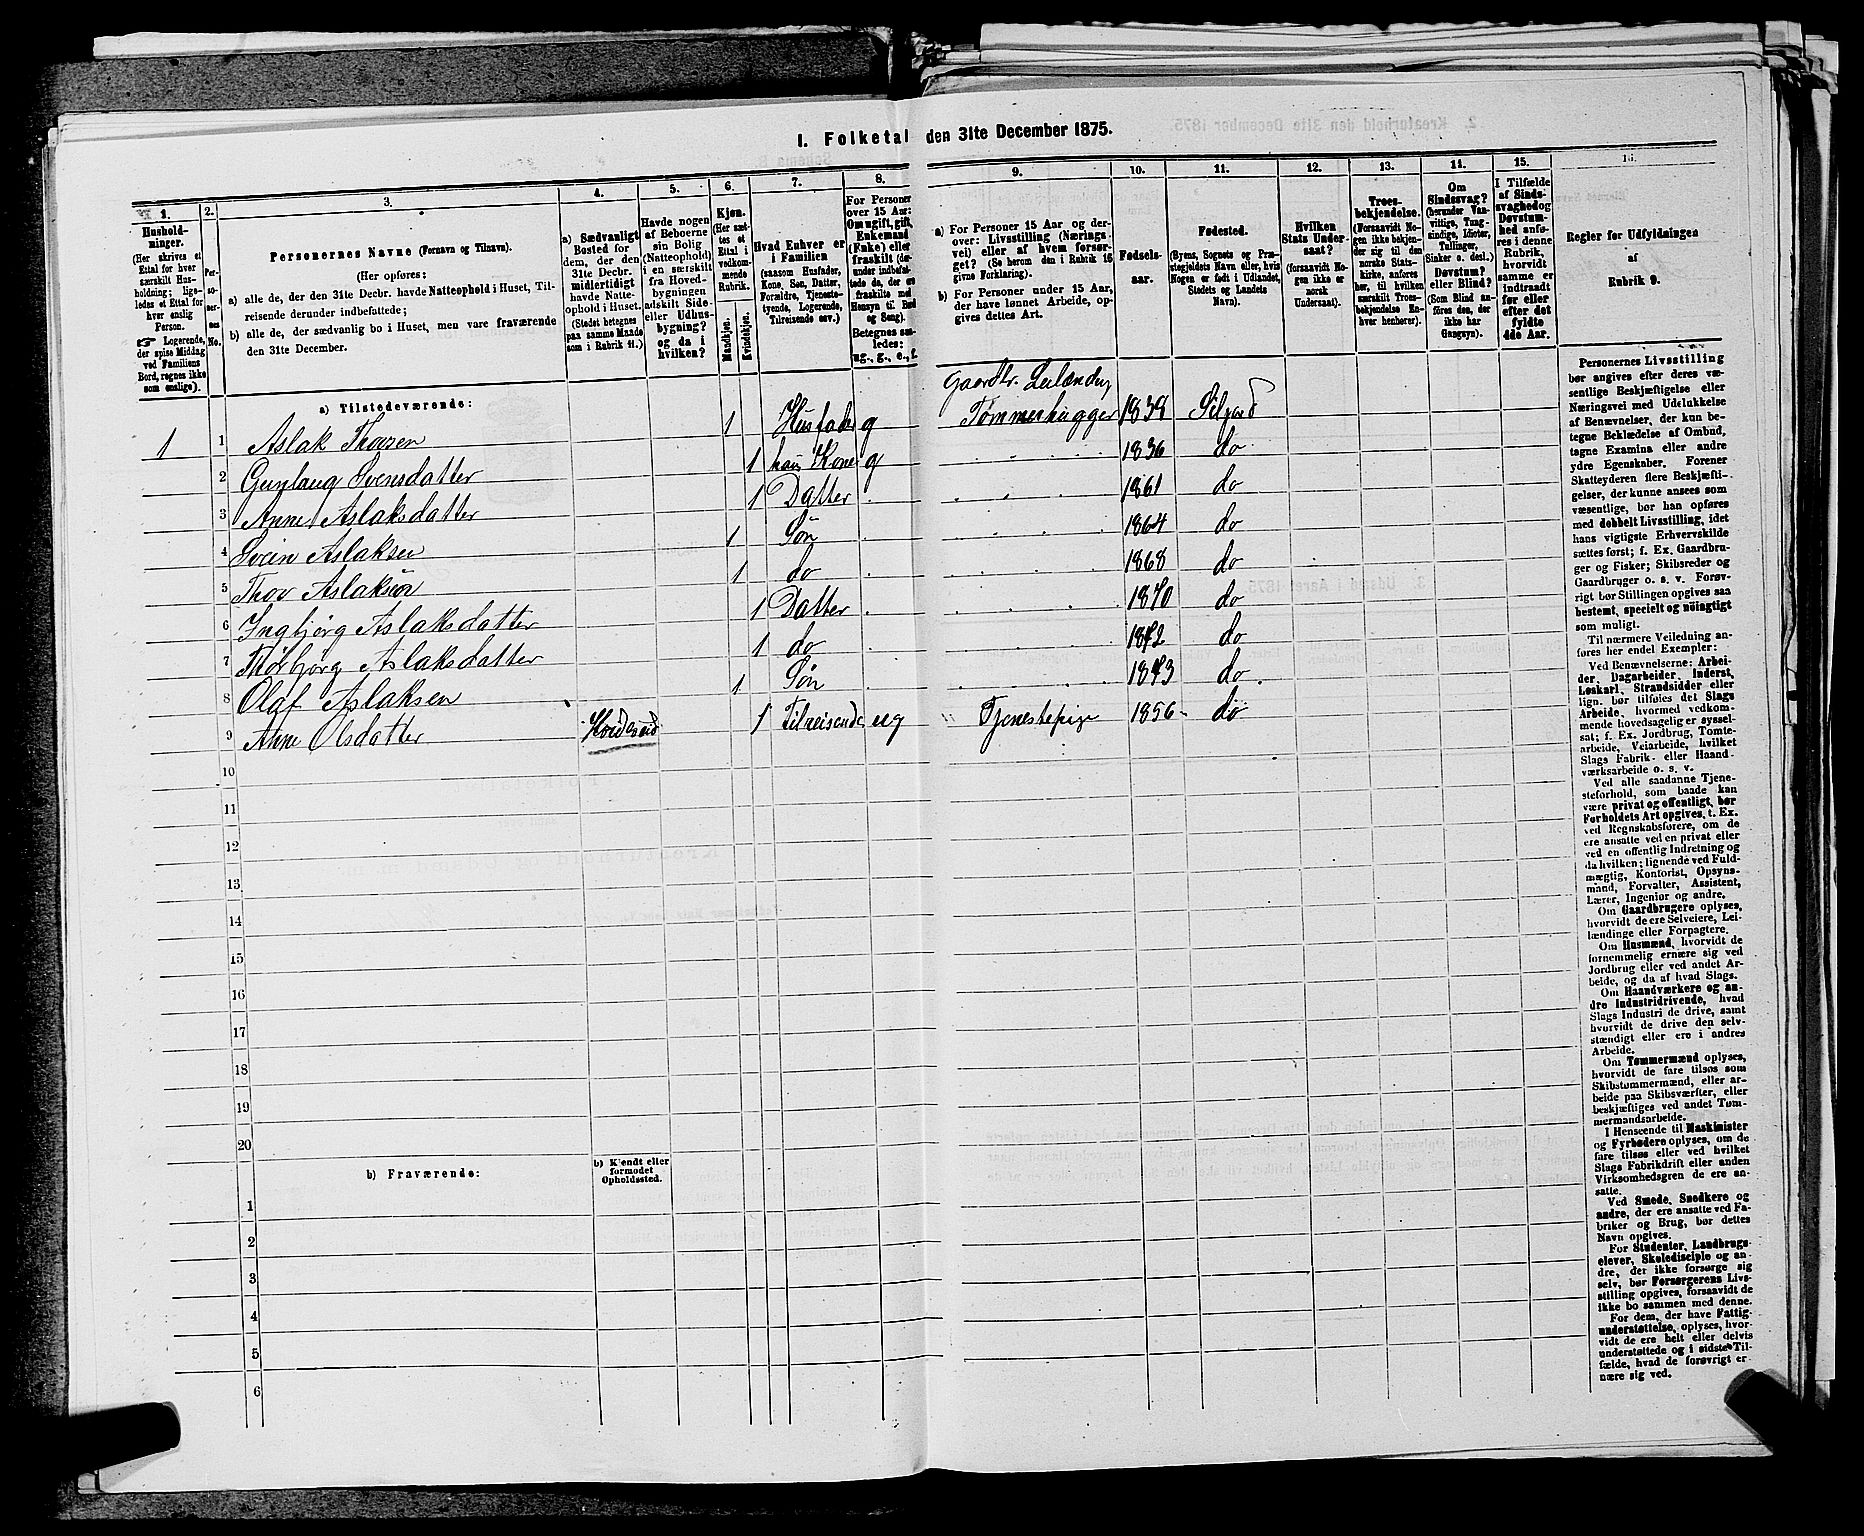 1. Folketal den 31te December 1875.
1.
Hushold-
ninger.
(Her skrives et
Ettal for hver
særskilt Hus-
holdning; lige-
ledes et Ettal for
hver enslig
Person.
☞ Logerende,
der spise Middag
ved Familiens
Bord, regnes ikke
som enslige).
2.
Per-
so-
ner-
nes
No.
3.
Personernes Navne (Fornavn og Tilnavn).
(Her opføres:
a) alle de, der den 31te Decbr. havde Natteophold i Huset, Til-
reisende derunder indbefattede;
b) alle de, der sædvanlig bo i Huset, men vare fraværende
den 31te December.
4.
a) Sædvanligt
Bosted for
dem, der den
31te Decbr.
midlertidigt
havde Natte-
ophold i Huset.
(Stedet betegnes
paa samme Maade
som i Rubrik 11.)
5.
Havde nogen
af Beboerne
sin Bolig
(Natteophold)
i en særskilt
fra Hoved-
bygningen
adskilt Side-
eller Udhus-
bygning?
og da i
hvilken?
6.
Kjøn.
(Her sæt-
tes et
Ettal i
vedkom-
mende
Rubrik.
Mandkjøn.
Kvindekjøn.
7.
Hvad Enhver er
i Familien
(saasom Husfader,
Kone, Søn, Datter,
Forældre, Tjeneste-
tyende, Logerende,
Tilreisende osv.)
8.
For Personer
over 15 Aar:
Om ugift, gift,
Enkemand
(Enke) eller
fraskilt (der-
under indbefat-
tede de, der ere
fraskilte med
Hensyn til Bord
og Seng).
Betegnes saa-
ledes:
ug., g., e., f.
9.
a) For Personer 15 Aar og der-
over: Livsstilling (Nærings-
vei) eller af hvem forsør-
get? (Se herom den i Rubrik 16
givne Forklaring).
b) For Personer under 15 Aar,
der have lønnet Arbeide, op-
gives dettes Art.
10.
Fødsels-
aar.
11.
Fødested.
(Byens, Sognets og Præ-
stegjeldets Navn eller, hvis
Nogen er født i Udlandet,
Stedets og Landets
Navn).
12.
Hvilken
Stats Under-
saat?
(forsaavidt No-
gen ikke er
norsk
Undersaat).
13.
Troes-
bekjendelse.
(Forsaavidt No-
gen ikke bekjen-
der sig til den
norske Stats-
kirke, anføres
her, til hvilken
særskilt Troes-
bekjendelse En-
hver henhører).
14.
Om
Sindssvag?
(herunder Van-
vittige, Tung-
sindige, Idioter,
Tullinger,
Sinker o. desl.).
Døvstum?
eller Blind?
(Som Blind an-
føres den, der
ikke har
Gangsyn).
15.
I Tilfælde
af Sinds-
svaghed og
Døvstum-
hed anfø-
res i denne
Rubrik,
hvorvidt
samme er
indtraadt
før eller
efter det
fyldte
4de Aar.
16.
Regler for Udfyldningen
af
Rubrik 9.
a) Tilstedeværende:
Gaardbr. Leilænding
1 1 Aslak Thorsen 1 Husfader g Tømmerhugger 1838 Siljord
2 Gunlaug Svensdatter 1 hans Kone g 1836 do
3 Anne Aslaksdatter 1 Datter 1861 do
4 Svein Aslaksen 1 Søn 1864 do
5 Thov Aslaksen 1 do 1868 do
6 Ingbjørg Aslaksdatter 1 Datter 1870 do
7 Thorbjørg Aslaksdatter 1 do 1872 do
8 Olaf Aslaksen 1 Søn 1873 do
9 Anne Olsdatter Hvideseid 1 Tilreisende ug Tjenestepige 1856 do
10
11
12
13
14
15
16
17
18
19
20
b) Fraværende:
b) Kjendt eller
formodet
Opholdssted.
1
2
3
4
5
6
Personernes Livsstilling
bør angives efter deres væ-
sentlige Beskjæftigelse eller
Næringsvei med Udelukkelse
af Benævnelser, der kun be-
tegne Beklædelse af Ombud,
tagne Examina eller andre
ydre Egenskaber. Forener
Skatteyderen flere Beskjæfti-
gelser, der kunne ansees som
væsentlige, bør han opføres
med dobbelt Livsstilling, idet
hans vigtigste Erhvervskilde
sættes først; f. Ex. Gaardbru-
ger og Fisker; Skibsreder og
Gaardbruger o. s. v. Forøv-
rigt bør Stillingen opgives saa
bestemt, specielt og nøiagtigt
som muligt.
Til nærmere Veiledning an-
føres her endel Exempler:
Ved Benævnelserne: Arbei-
der, Dagarbeider, Inderst,
Løskarl, Strandsidder eller
lign. bør tilføies det Slags
Arbeide, hvormed vedkom-
mende hovedsagelig er syssel-
sat; f. Ex. Jordbrug, Tomte-
arbeide, Veiarbeide, hvilket
Slags Fabrik- eller Haand-
værksarbeide o. s. v.
Ved alle saadanne Tjene-
steforhold, som baade kan
være privat og offentligt, bør
Forholdets Art opgives, t. Ex.
ved Regnskabsførere, om de
ere ansatte ved en privat eller
ved en offentlig Indretning og
da hvilken; lignende ved Fuld-
mægtig, Kontorist, Opsyns-
mand, Forvalter, Assistent,
Lærer, Ingeniør og andre.
Om Gaardbrugere oplyses,
hvorvidt de ere Selveiere, Lei-
lændinge eller Forpagtere.
Om Husmænd, hvorvidt de
fornemmelig ernære sig ved
Jordbrug eller ved andet Ar-
beide, og da af hvad Slags.
Om Haandværkere og an-
dre Industridrivende, hvad
Slags Industri de drive, samt
hvorvidt de drive den selv-
stændigt eller ere i andres
Arbeide.
Om Tømmermænd oplyses,
hvorvidt de fare tilsøs som
Skibstømmermænd, eller ar-
beide paa Skibsværfter, eller
beskjæftiges ved andet Tøm-
mermandsarbeide.
I Henseende til Maskinister
og Fyrbødere oplyses, om de
fare tilsøs eller ved hvilket
Slags Fabrikdrift eller anden
Virksomhedsgren de ere an-
satte.
Ved Smede, Snedkere og
andre, der ere ansatte ved Fa-
briker og Brug, bør dettes
Navn opgives.
For Studenter, Landbrugs-
elever, Skoledisciple og an-
dre, der ikke forsørge sig
selv, bør Forsørgerens Livs-
stilling opgives, forsaavidt de
ikke bo sammen med denne.
For dem, der have Fattig-
understøttelse, oplyses, hvor-
vidt de ere helt eller delvis
understøttede og i sidste Til-
fælde, hvad de forøvrigt er-
nære sig ved.